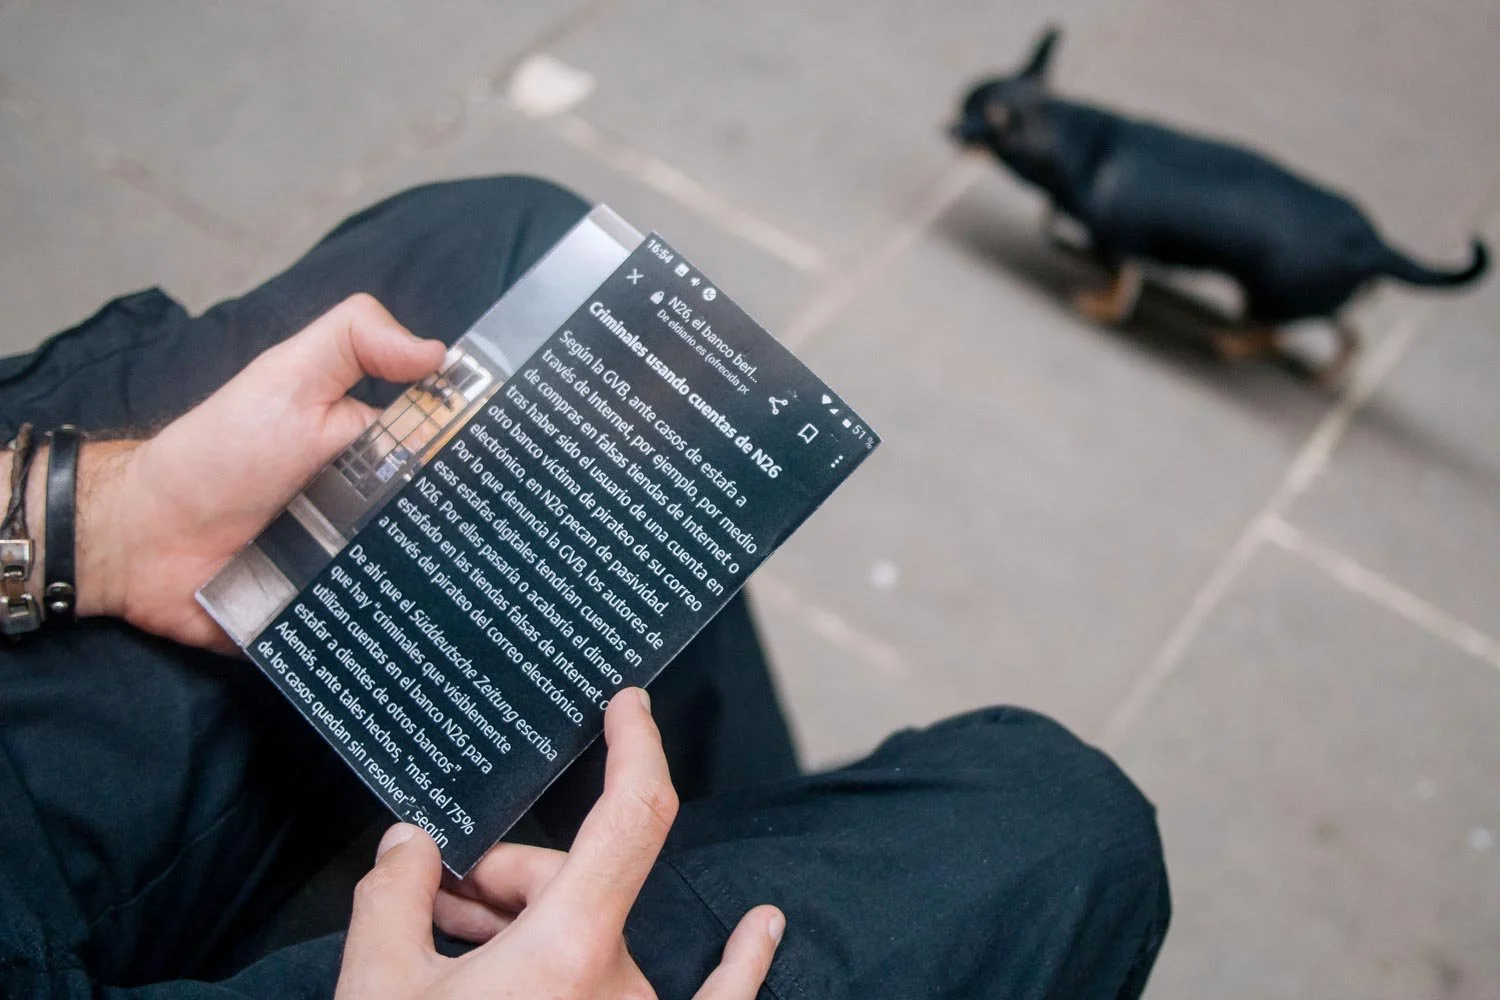 16:54
51 %
N26, el banco berl...
De eldiario.es (ofrecida po
Criminales usando cuentas de N26
Según la GVB, ante casos de estafa a
través de Internet, por ejemplo, por medio
de compras en falsas tiendas de Internet o
tras haber sido el usuario de una cuenta en
otro banco víctima de pirateo de su correo
electrónico, en N26 pecan de pasividad.
Por lo que denuncia la GVB, los autores de
esas estafas digitales tendrían cuentas en
N26. Por ellas pasaría o acabaría el dinero
estafado en las tiendas falsas de Internet o
a través del pirateo del correo electrónico.
De ahí que el Süddeutsche Zeitung escriba
que hay "criminales que visiblemente
utilizan cuentas en el banco N26 para
estafar a clientes de otros bancos".
Además, ante tales hechos, "más del 75%
de los casos quedan sin resolver", según